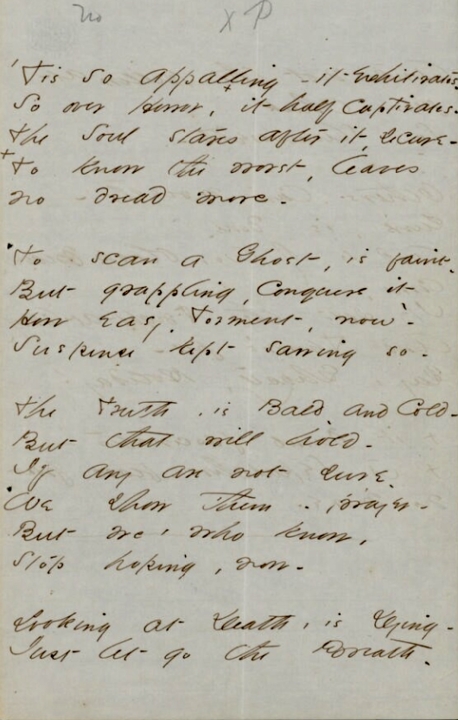 no
x P
'Tis so appalling - it exhilirates
So over Horror, it half Captivates -
The Soul stares after it, secure -
+ To know the worst, leaves
no dread more -
To scan a Ghost, is faint
But grappling, Conquers it -
How Easy, Torment, now -
Suspense kept sawing so -
The Truth, is Bald and Cold -
But that will hold -
If any are not sure -
We show them - prayer -
But we, who know,
Stop hoping, now -
Looking at Death, is Dying -
Just let go the Breath -